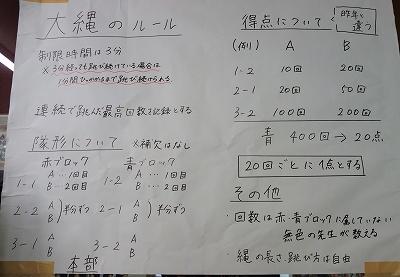 大縄のルール
制限時間は3分
※3分経っても跳び続けている場合は
1分間ひっかかるまで跳び続けられる。
連続で跳んだ最高回数を記録とする
隊形について ※補欠はなし
赤ブロック 青ブロック
1-1 A…1回目 1-2 A…1回目
B…2回目 B…2回目
2-2 A B )半分ずつ 2-1 A B )半分ずつ
3-1 A B 3-2 A B
本部
得点について 昨年と違う
(例) A B
1-2 10回 20回
2-1 20回 50回
3-2 100回 200回
青 400回→20点
20回ごとに1点とする
その他
・回数は赤・青ブロックに属していない
無色の先生が数える
・縄の長さ、跳び方は自由